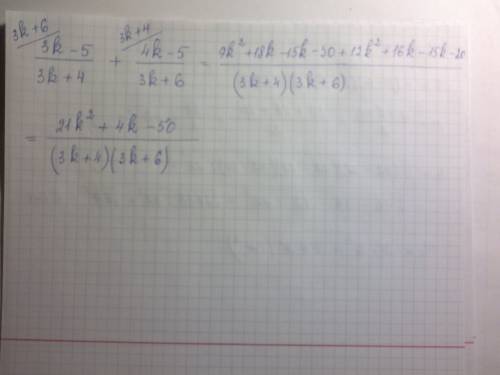 3k+6 3k+4
(3k-5)/(3k+4) + (4k-5)/(3k+6) = (9k²+18k-15k-30+12k²+16k-15k-20)/((3k+4)(3k+6))
= (21k²+4k-50)/((3k+4)(3k+6))